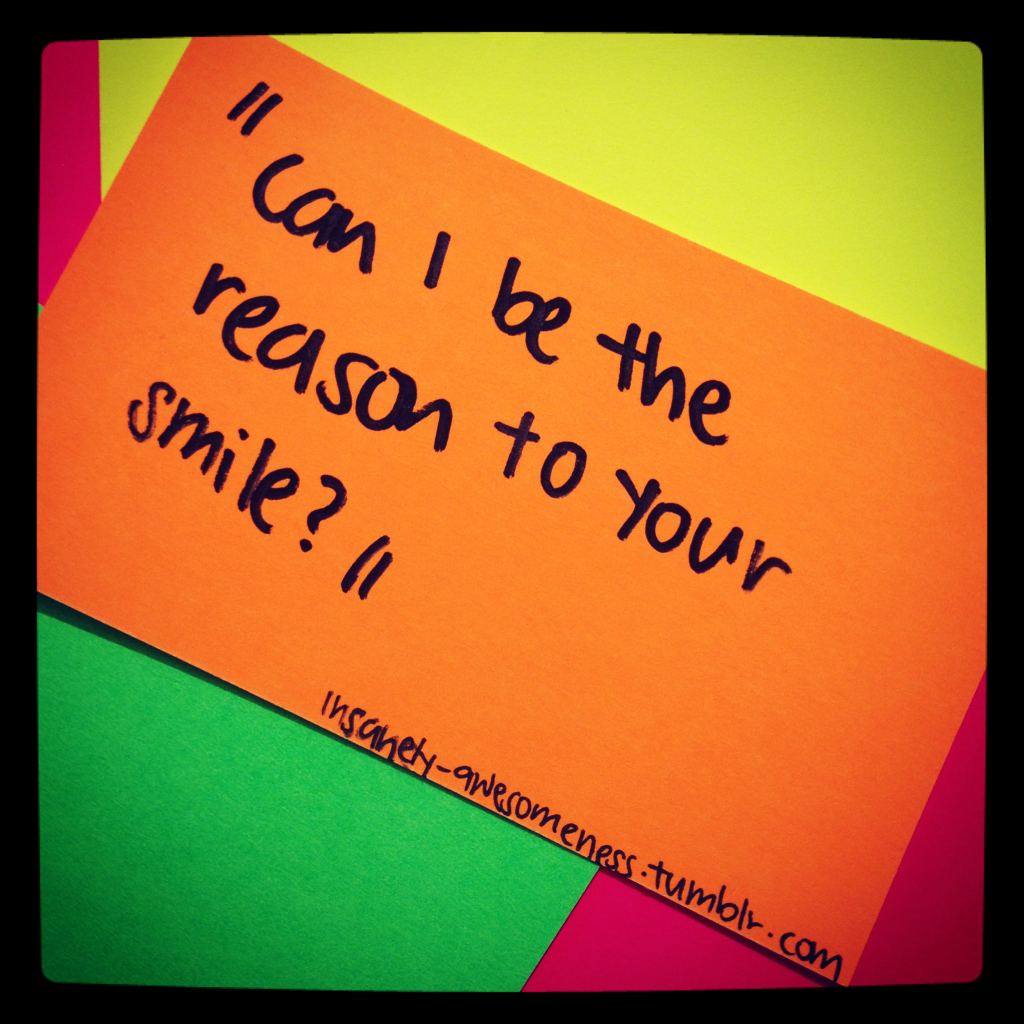 "Can I be the
reason to your
smile?"
Insanety-awesomeness.tumblr.com